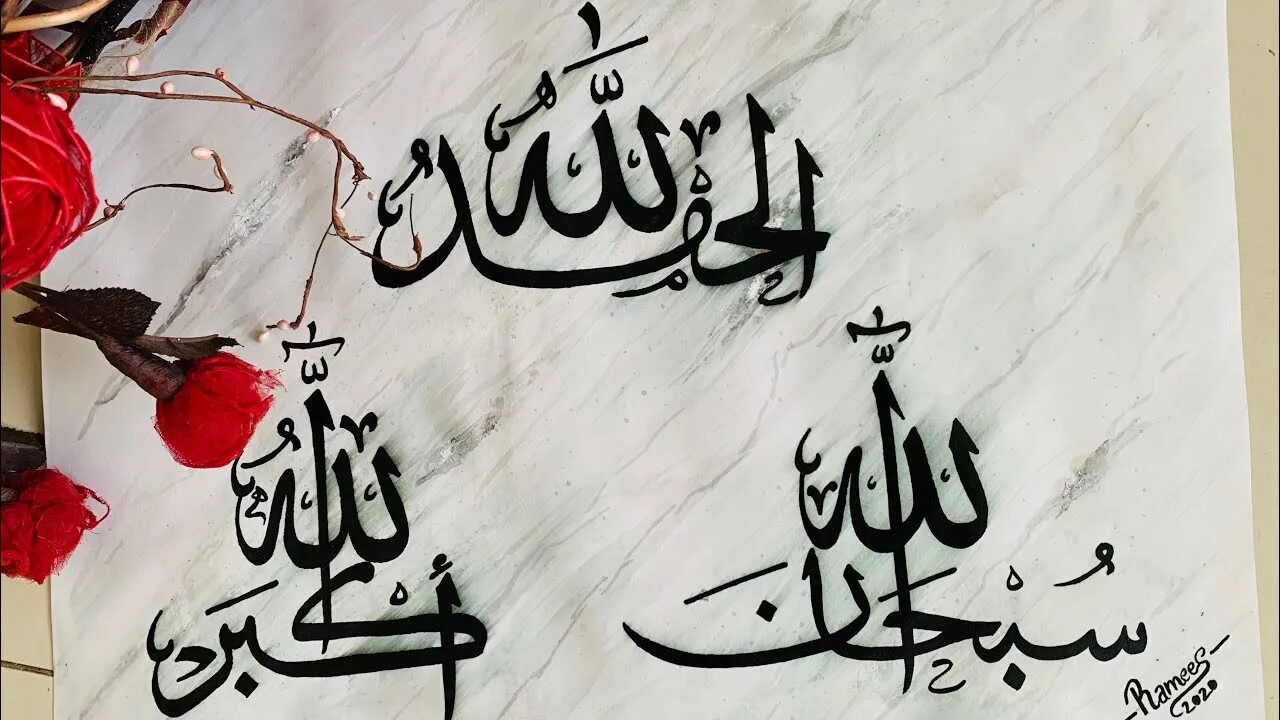 الحَمْدُ لِلَّهُ
سُبْحَانَ اللَّه
اللَّهُ أَكْبَر
Ramees
2020